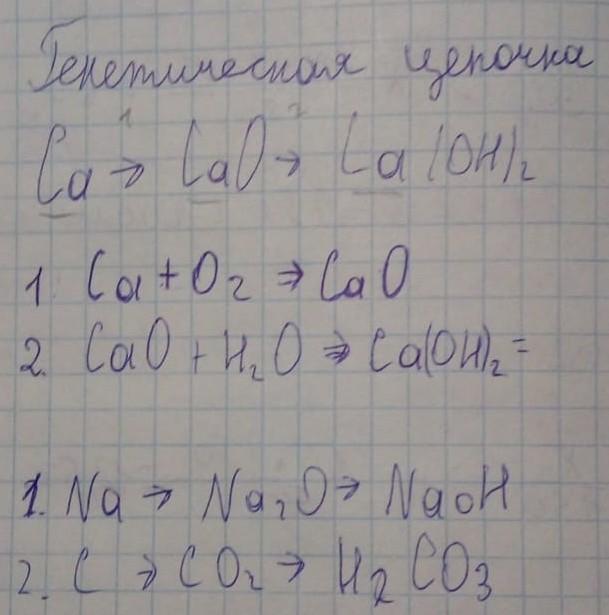 Генетическая цепочка
1 2
Ca → CaO → Ca(OH)₂
1 Ca + O₂ → CaO
2. CaO + H₂O → Ca(OH)₂ =
1. Na → Na₂O → NaOH
2. C → CO₂ → H₂CO₃